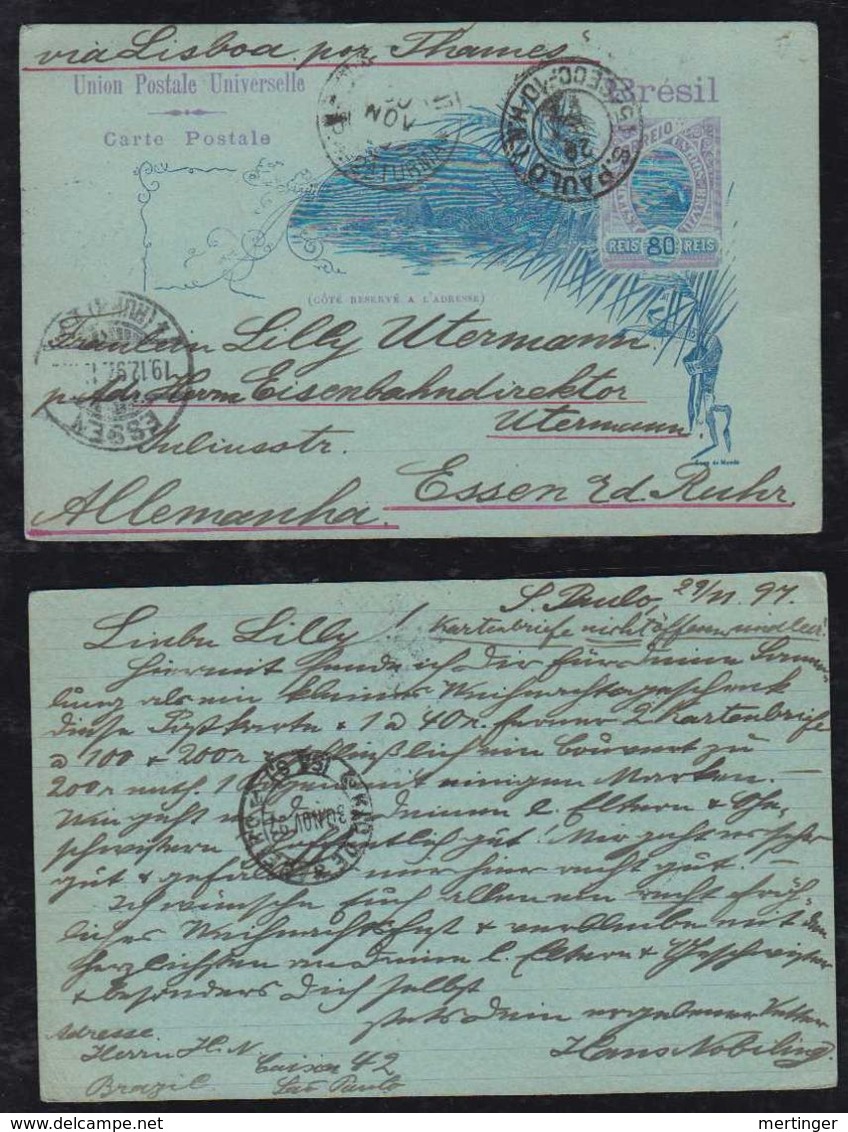 via Lisboa por Thames
Union Postale Universelle
Brésil
Carte Postale
REIS 80 REIS
(CÔTÉ RESERVÉ A L'ADRESSE)
Fräulein Lilly Utermann
p. Adr. Herrn Eisenbahndirektor
Utermann
Juliusstr.
Essen a/d Ruhr
Allemanha
ESSEN
19.12.97
S. Paulo, 29/11 97.
Liebe Lilly! Kartenbriefe nicht öffnen
Hiermit sende ich Dir für Deine Samm-
lung als ein kleines Weihnachtsgeschenk
diese Postkarte + 1 a 40 r. ferner 2 Kartenbriefe
a 100 + 200 r + schließlich ein Couvert zu
200 r nebst 1 mit einigen Marken. –
Wie geht es Deinen l. Eltern & Ge-
schwistern hoffentlich gut! Mir geht es sehr
gut & gefällt mir hier recht gut. –
Ich wünsche Euch allen ein recht fröh-
liches Weihnachtsfest & verbleibe mit den
herzlichsten an Deine l. Eltern & Geschwister
& besonders Dich selbst
stets Dein ergebener Vetter
Hans Nobiling.
Adresse
Herrn H. N.
Caixa 42
Brazil São Paulo
30 NOV 97
mertinger